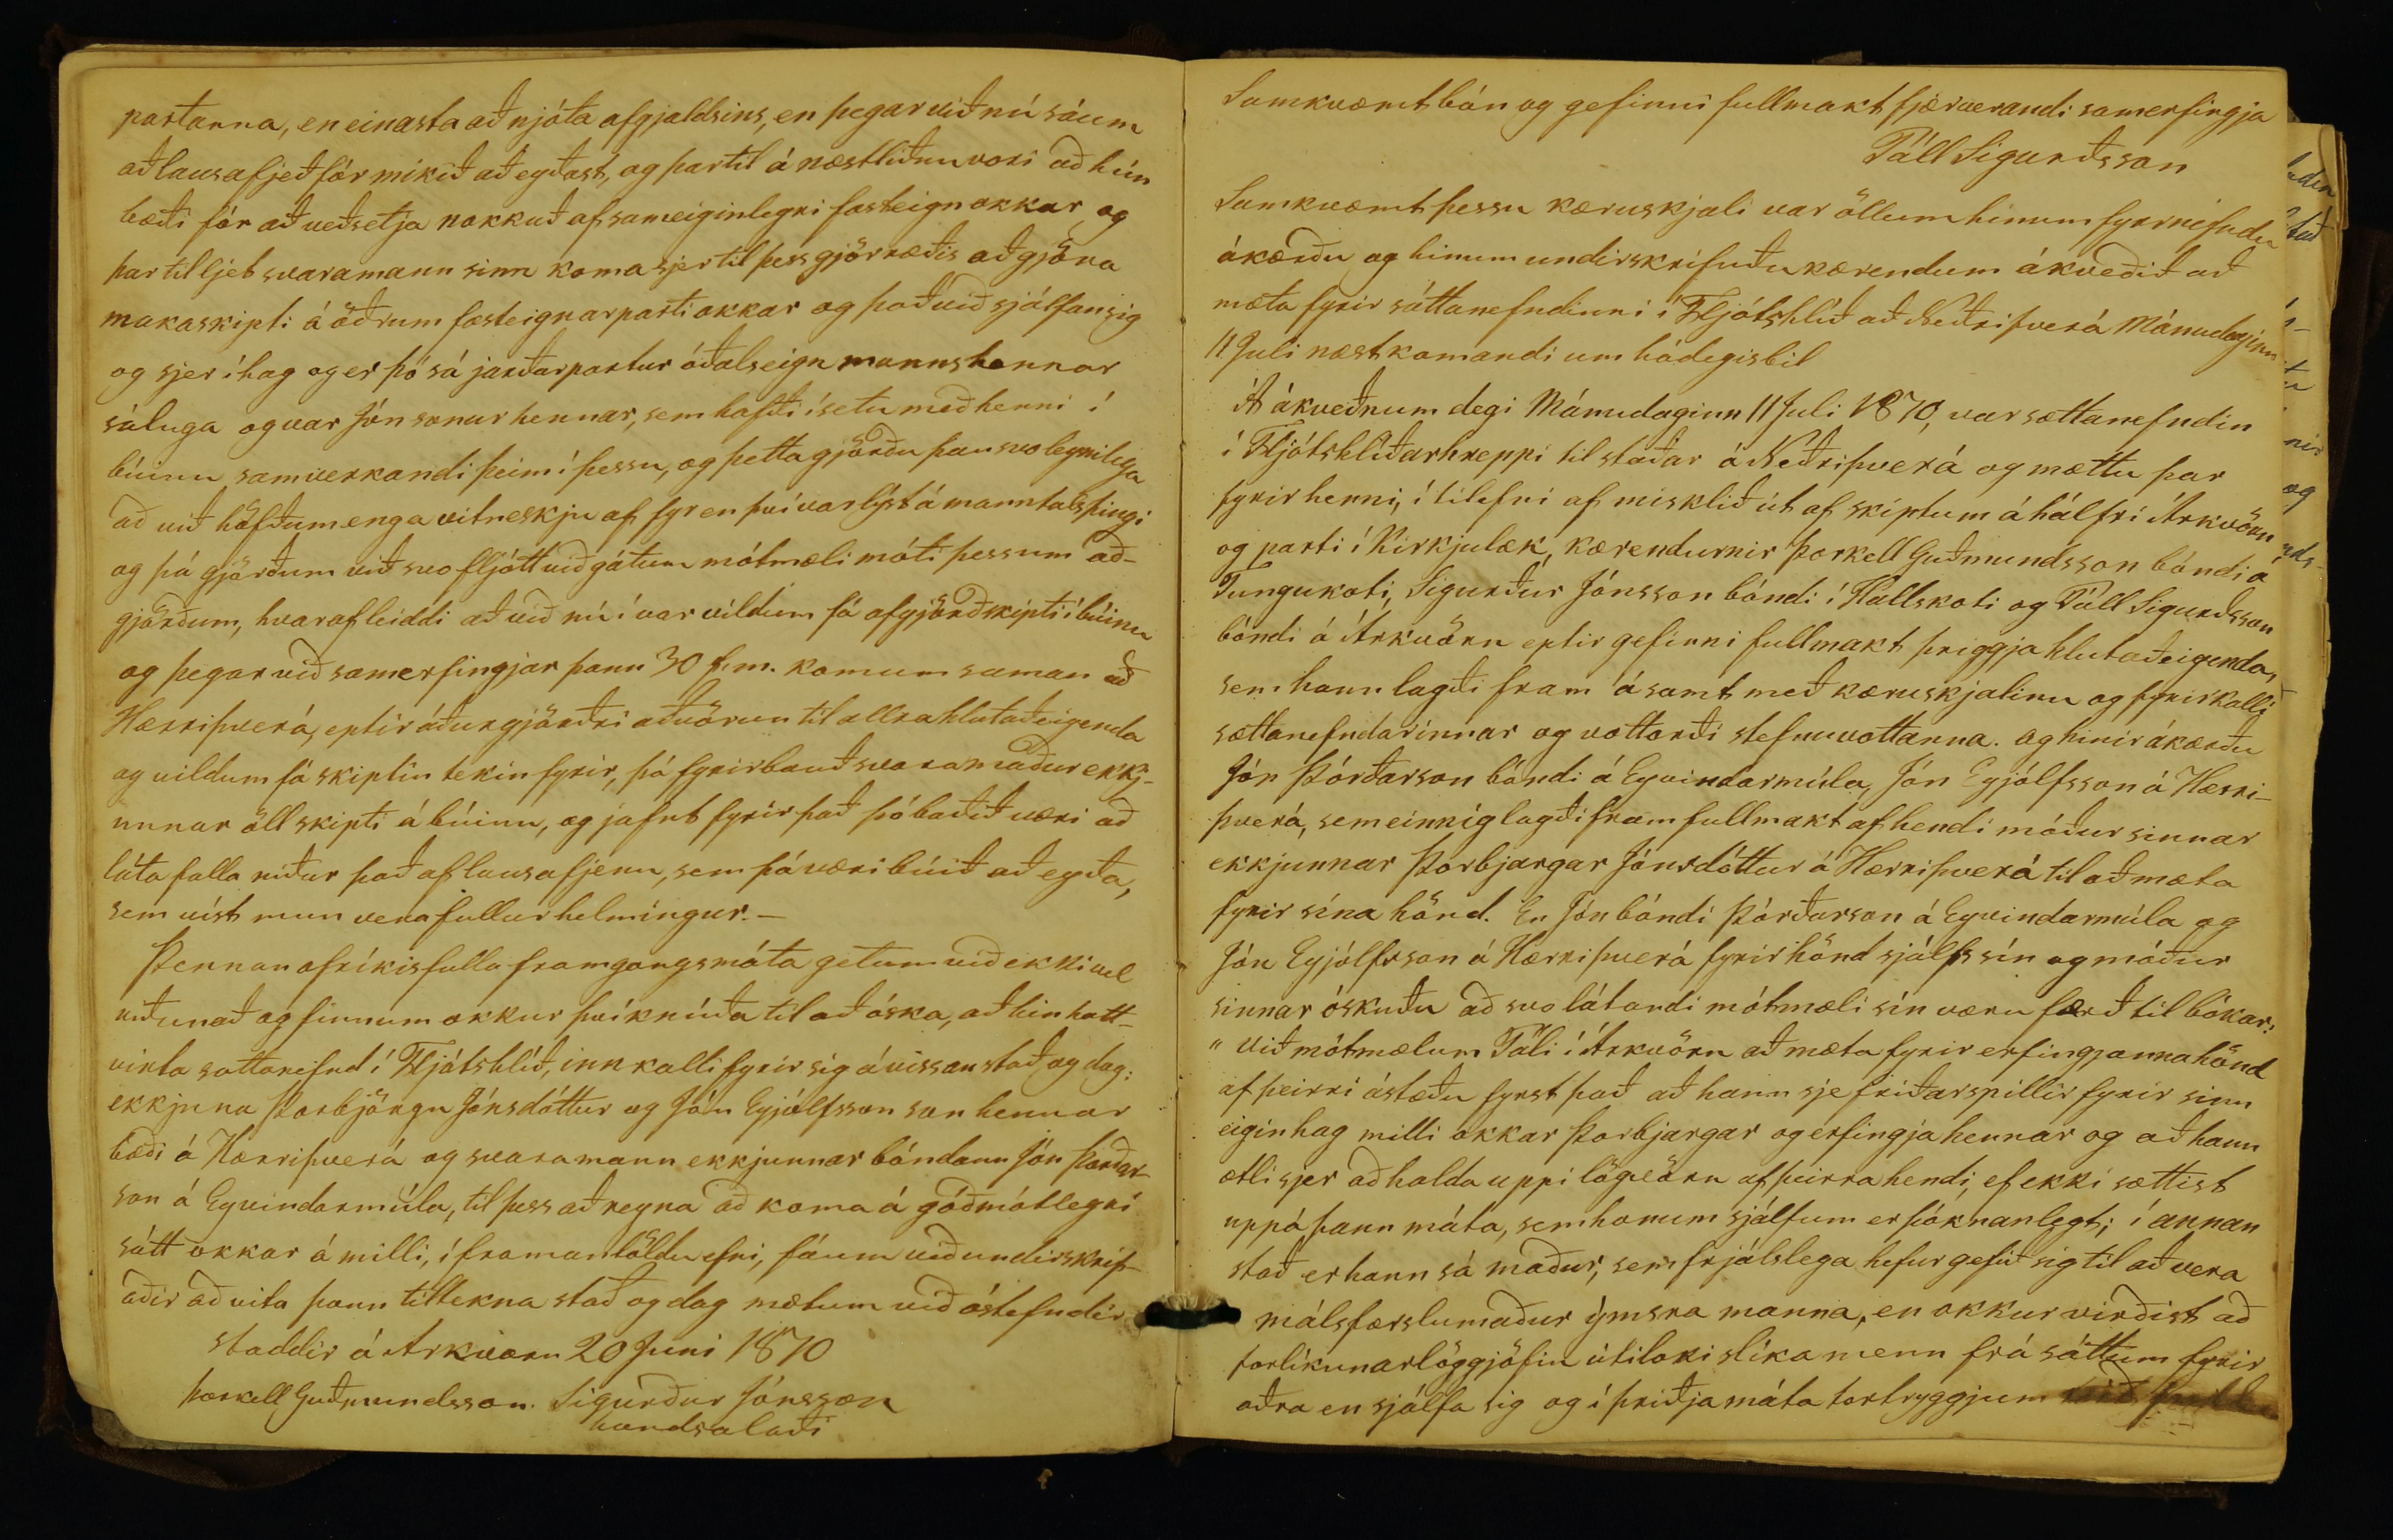 partanna, en einasta að njóta afgjaldsins, en þegar við nú sáum
að lausafjeð fór mikið að eyðast, og þar til á næstliðnu vori að hún
bæði fór að veðsetja nokkuð af sameiginlegri fasteign okkar og
þar til ljet svaramann sinn koma sjer til þess gjörræðis að gjöra
makaskipti á öðrum fasteignarparti okkar og það við sjálfan sig
og sjer í hag og er þó sá jarðarpartur óðalseign manns hennar
sáluga og var Jón sonur hennar, sem hafði ísetu með henni í
búinu samverkandi þeim í þessu, og þetta gjörðu þau svo leynilega
að við höfðum enga vitneskju af fyr en því var lýst á manntalsþingi
og þá gjörðum við svo fljótt við gátum mótmæli móti þessum að-
gjörðum, hvaraf leiddi að við nú í vor vildum fá afgjörð skipti í búinu
og þegar við samerfingjar þann 30 f. m. komum saman að
Hærriþverá, eptir áður gjörðri aðvörun til allra hlutaðeigenda
og vildum fá skiptin tekin fyrir, þá fyrirbauð svaramaður ekkj-
unnar öll skipti á búinu, og jafnt fyrir það þó boðið væri að
láta falla niður það af lausafjenu, sem þá væri búið að eyða,
sem víst mun vera fullur helmingur. —
Þennan ofríkisfulla framgangsmáta getum við ekki vel
við unað og finnum okkur því knúða til að óska, að hin hátt-
virta sáttanefnd í Fljótshlíð, inn kalli fyrir sig á vissan stað og dag:
ekkjuna Þorbjörgu Jónsdóttur og Jón Eyjólfsson son hennar
bæði á Hærriþverá og svaramann ekkjunnar bóndann Jón Þórðar-
son á Eyvindarmúla, til þess að reyna að koma á góðmótlegri
sátt okkar á milli, í framantöldu efni, fáum við undirskrif-
aðir að vita þann tiltekna stað og dag mætum við óstefndir
staddir á Arkvörn 20 Juni 1870
Þorkell Guðmundsson. Sigurður Jónsson
handsalaði
Samkvæmt bón og gefinni fullmakt fjærverandi samerfingja
Páll Sigurðsson
Samkvæmt þessu kæruskjali var öllum hinum fyrnefndu
ákærðu og hinum undirskrifuðu kærendum ákveðið að
mæta fyrir sáttanefndinni í Fljótshlíð að Neðriþverá Mánudaginn
11 Juli næstkomandi um hádegisbil
Á ákveðnum degi Mánudaginn 11 Juli 1870, var sættanefndin
í Fljótshlíðarhreppi til staðar á Neðriþverá og mættu þar
fyrir henni, í tilefni af misklið út af skiptum á hálfri Arkvörn
og parti í Kirkjulæk, kærendurnir Þorkell Guðmundsson bóndi á
Tungukoti, Sigurður Jónsson bóndi í Hallskoti og Páll Sigurðsson
bóndi á Arkvörn eptir gefinni fullmakt þriggja hlutaðeigenda,
sem hann lagði fram ásamt með kæruskjalinu og fyrirkalli
sættanefndarinnar og vottorði stefnuvottanna. og hinir ákærðu
Jón Þórðarson bóndi á Eyvindarmúla, Jón Eyjólfsson á Hærri-
þverá, sem einnig lagði fram fullmakt af hendi móður sinnar
ekkjunnar Þorbjargar Jónsdóttur á Hærriþverá til að mæta
fyrir sína hönd. En Jón bóndi Þórðarson á Eyvindarmúla og
Jón Eyjólfsson á Hærriþverá fyrir hönd sjálfs sín og móður
sinnar óskuðu að svo látandi mótmæli sín væru færð til bókar:
" við mótmælum Páli í Arkvörn að mæta fyrir erfingjanna hönd
af þeirri ástæðu fyrst það að hann sje friðarspillir fyrir sinn
eigin hag milli okkar Þorbjargar og erfingja hennar og að hann
ætli sjer að halda uppi lögvörn af þeirra hendi, ef ekki sættist
uppá þann máta, sem honum sjálfum er þóknanlegt; í annan
stað er hann sá maður, sem frjálslega hefur gefið sig til að vera
málsfærslumaður ýmsra manna, en okkur virðist að
forlíkunarlöggjöfin útiloki slíka menn frá sáttum fyrir
aðra en sjálfa sig og í þriðja máta tortryggjum við